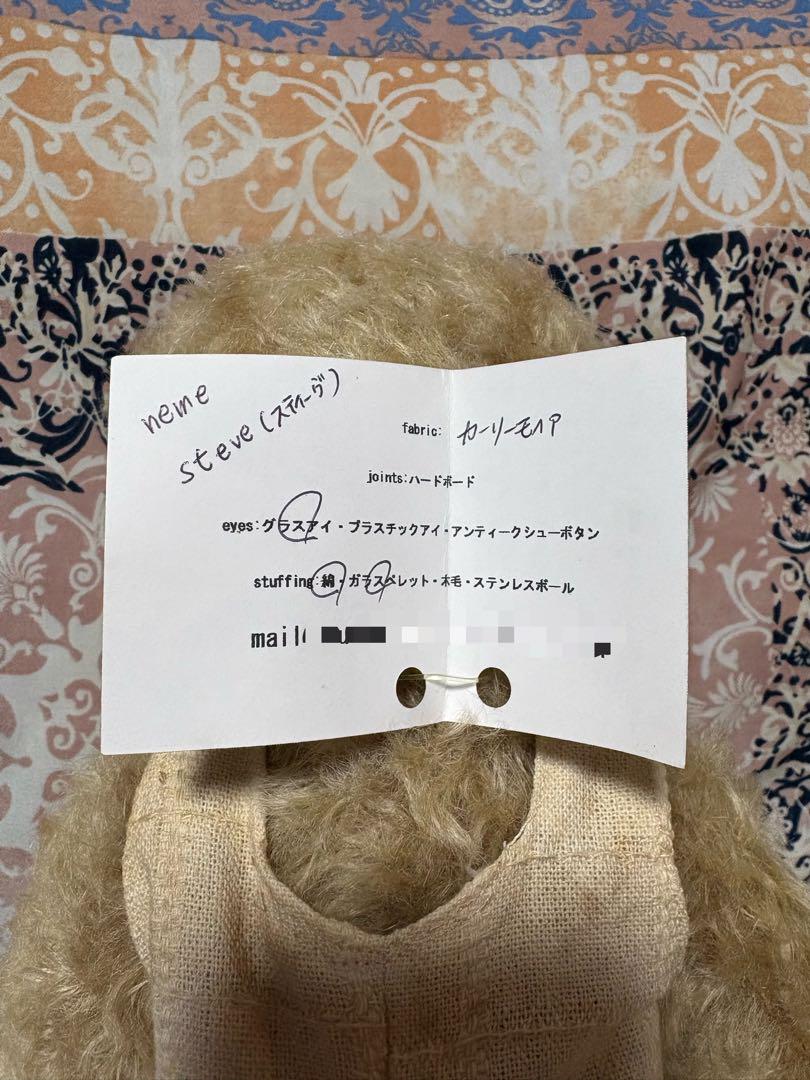 neme
steve(スティーヴ)
fabric: カーリーモヘア
joints:ハードボード
eyes:グラスアイ・プラスチックアイ・アンティークシューボタン
stuffing:綿・ガラスペレット・木毛・ステンレスボール
mail